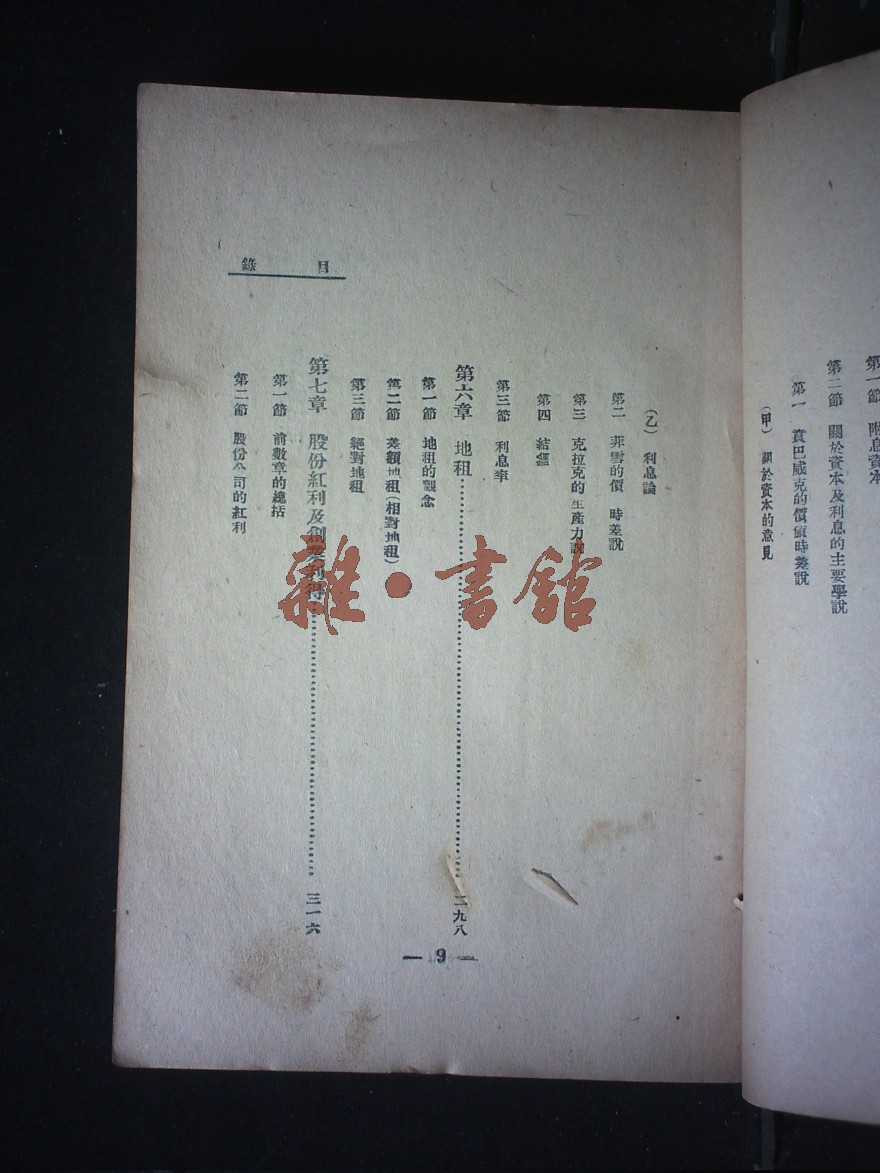 第一節 附息資本
第二節 關於資本及利息的主要學說
第一 賁巴威克的價值時差說
(甲) 關於資本的意見
目錄
(乙) 利息論
第二 菲雪的價 時差說
第三 克拉克的生產力說
第四 結論
第三節 利息率
第六章 地租 二九八
第一節 地租的觀念
第二節 差額地租(相對地租)
第三節 絕對地租
第七章 股份紅利及創業利得 三一六
第一節 前數章的總括
第二節 股份公司的紅利
— 9 —
雜·書館